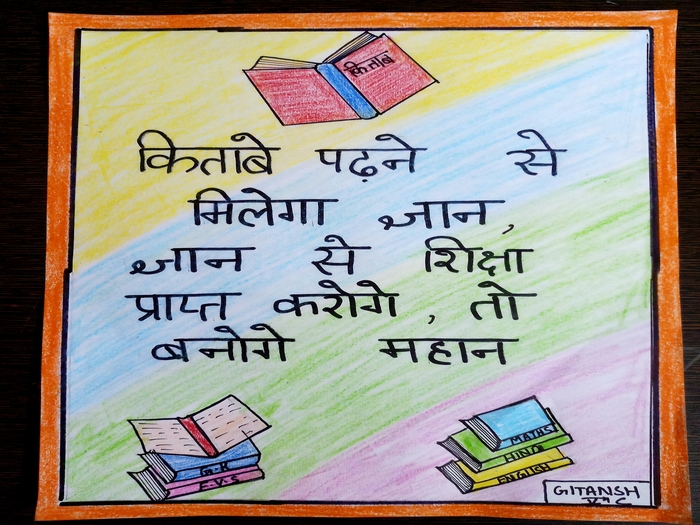 किताब
किताबे पढ़ने से
मिलेगा ज्ञान,
ज्ञान से शिक्षा
प्राप्त करोगे, तो
बनोगे महान
G.K
E.V.S
MATHS
HINDI
ENGLISH
GITANSH